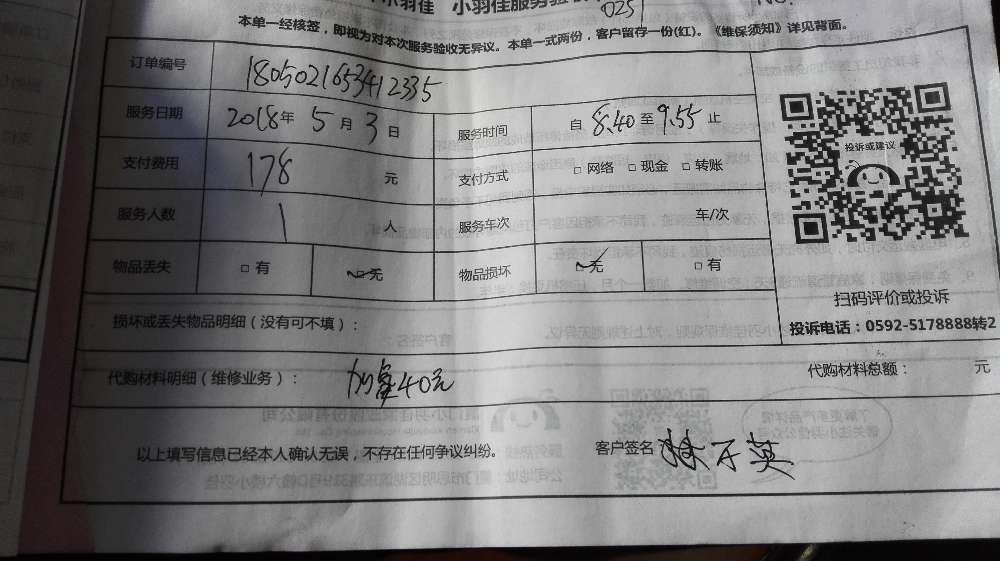 小羽佳 小羽佳服务验收
0251
本单一经核签，即视为对本次服务验收无异议。本单一式两份，客户留存一份(红)。《维保须知》详见背面。
订单编号 1805021653412335
服务日期 2018年 5月 3日 服务时间 自 8.40 至 9.55 止
支付费用 178 元 支付方式 □ 网络 □ 现金 □ 转账
服务人数 1 人 服务车次 车/次
物品丢失 □ 有 □ 无 物品损坏 □ 无 □ 有
投诉或建议
扫码评价或投诉
投诉电话：0592-5178888转2
损坏或丢失物品明细（没有可不填）：
代购材料明细（维修业务）： 40元
代购材料总额： 元
以上填写信息已经本人确认无误，不存在任何争议纠纷。 客户签名 英